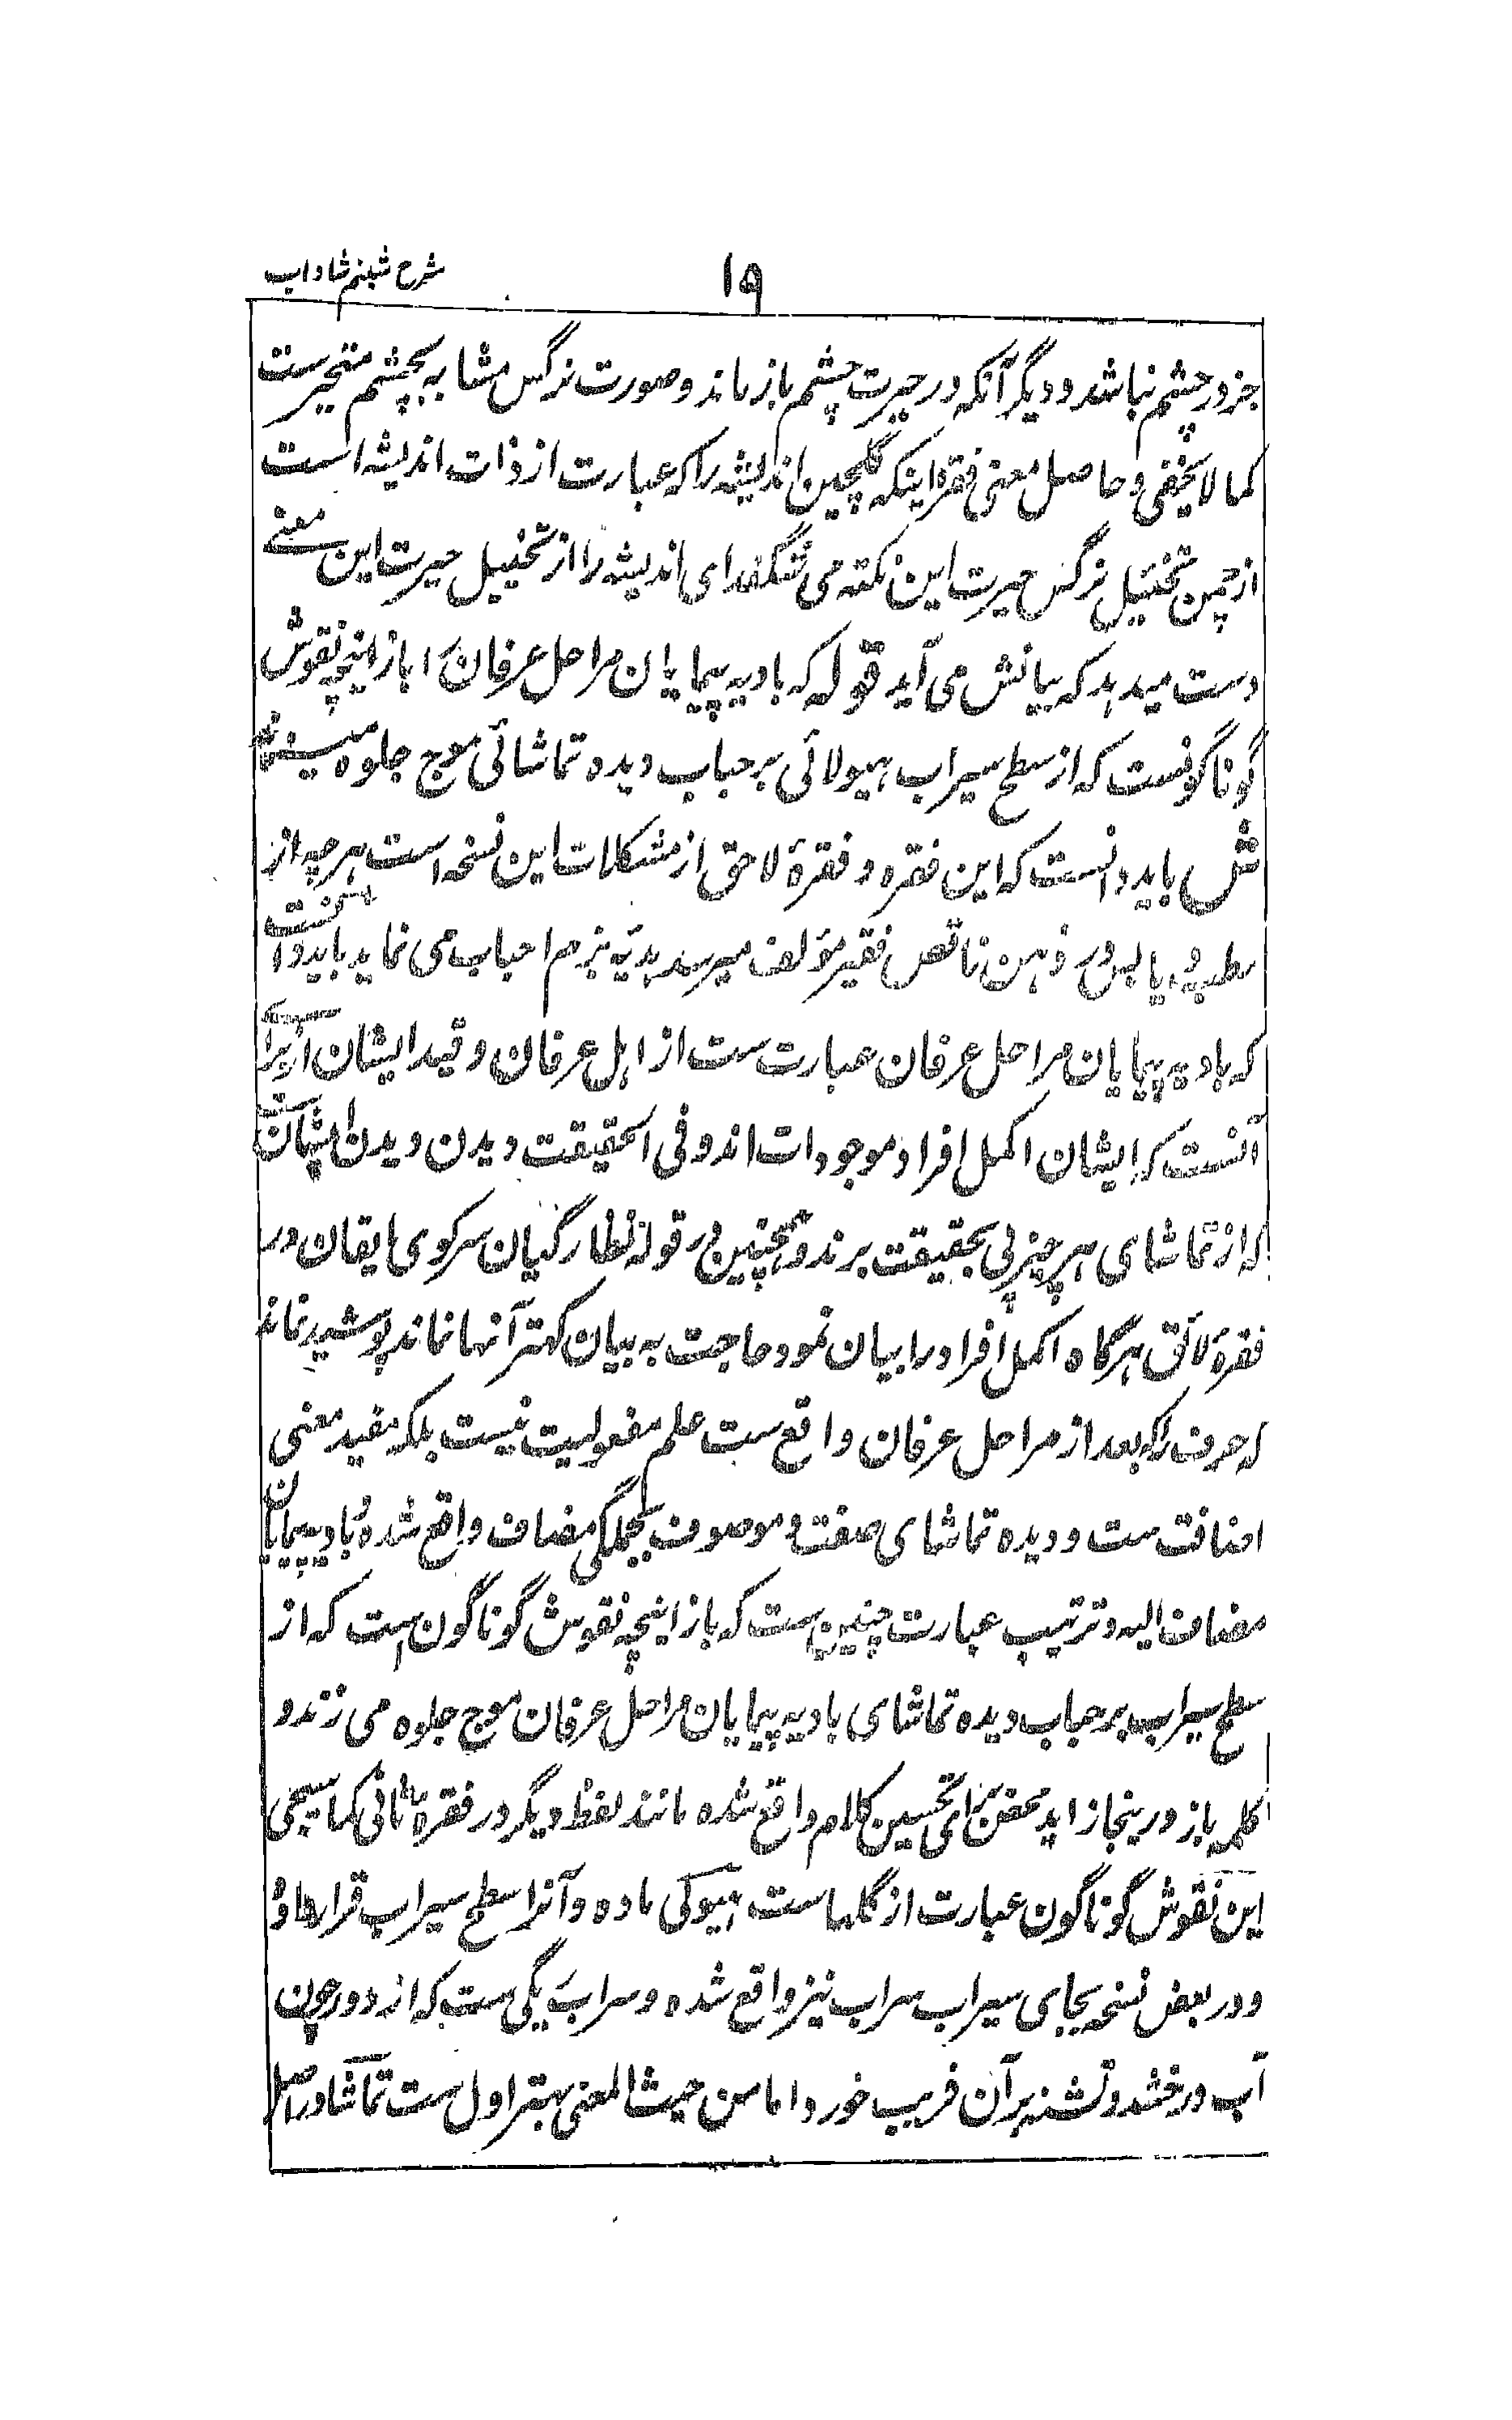 شرح شبنم شاداب
۱۹
جز در چشم نباشد و دیگر آنکه در حیرت چشم باز ماند و صورت نرگس مشابه بچشم متحیرست
کما لا یخفی و حاصل معنی فقره اینکه گلچین اندیشه را که عبارت از ذات اندیشه است
از چمن تخئیل نرگس حیرت این نکته می شگفد ای اندیشه را از تخئیل حیرت این معنے
دست میدهد که بیانش می آید قوله که بادیه پیمایان مراحل عرفان را بازیچه نقوش
گوناگونست که از سطح سیراب هیولائی بر حباب دیده تماشائی موج جلوه میزند
ش باید دانست که این فقره و فقرهٔ لاحق از مشکلات این نسخه است هرچه از
رطب و یابس در ذهن ناقص فقیر مؤلف میرسد هدیّه بزم احباب می نماید باید دانست
که بادیه پیمایان مراحل عرفان عبارت ست از اهل عرفان و قید ایشان
آنست که ایشان اکمل افراد موجودات اند و فی الحقیقت دیدن دیدن ایشان ست
که از تماشای هر چیز پی بحقیقت برند و همچنین در قوله نظارگیان سرکوی ایقان در
فقرهٔ لاحق هرگاه اکمل افراد را بیان نمود حاجت به بیان کهتر آنها نماند پوشیده نماند
که حرف را که بعد از مراحل عرفان واقع ست علم مفعولیت نیست بلکه مفید معنی
اضافت ست و دیده تماشای صفت و موصوف بجملگی مضاف واقع شده و بادیه پیمایان
مضاف الیه و ترتیب عبارت چنین ست که بازیچه نقوش گوناگون است که از
سطح سیراب بر حباب دیده تماشای بادیه پیمایان مراحل عرفان موج جلوه می زند و
کلمه باز درینجا زاید محض برای تحسین کلام واقع شده مانند لفظ دیگر در فقرهٔ ثانی کما سیجی
این نقوش گوناگون عبارت از گلهاست هیولی ماده و آنرا سطح سیراب قرار داد
و در بعض نسخه بجای سیراب سراب نیز واقع شده و سراب ریگی ست که از دور چون
آب درخشد و تشنه بر آن فریب خورد اما من حیث المعنی بهتر اول ست تماشا در اصل